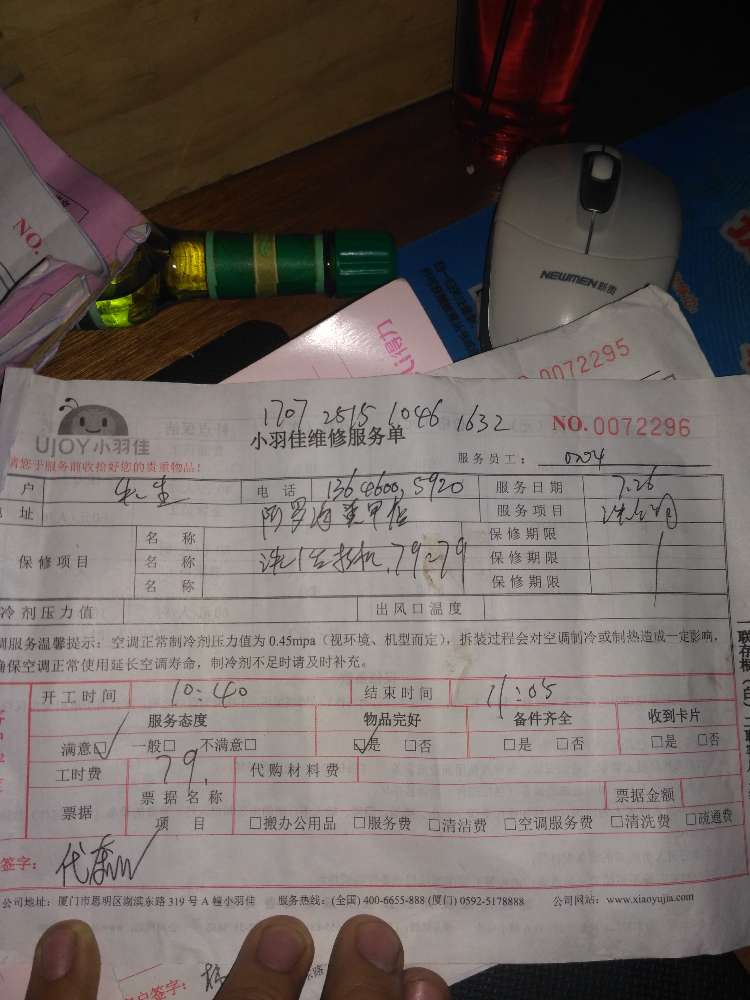 NO.
NEWMEN新贵
省力
NO.0072295
1707 2515 1046 1632
UJOY小羽佳
小羽佳维修服务单
NO.0072296
请您于服务前收拾好您的贵重物品!
服务员工:
户
电 话
136 4600, 5920
服务日期
7.26
址
服务项目
保修项目
名 称
保修期限
名 称
79-79
保修期限
名 称
保修期限
冷剂压力值
出风口温度
调服务温馨提示: 空调正常制冷剂压力值为 0.45mpa (视环境、机型而定), 拆装过程会对空调制冷或制热造成一定影响,
确保空调正常使用延长空调寿命, 制冷剂不足时请及时补充。
开工时间
10:40
结束时间
11:05
服务态度
物品完好
备件齐全
收到卡片
满意□ 一般□ 不满意□
□是 □否
□是 □否
□是 □否
工时费
79.
代购材料费
票据
票据名称
票据金额
项 目
□搬办公用品 □服务费 □清洁费 □空调服务费 □清洗费 □疏通费
签字:
公司地址: 厦门市思明区湖滨东路 319 号 A 幢小羽佳 服务热线: (全国) 400-6655-888 (厦门) 0592-5178888 公司网站: www.xiaoyujia.com
户签字: